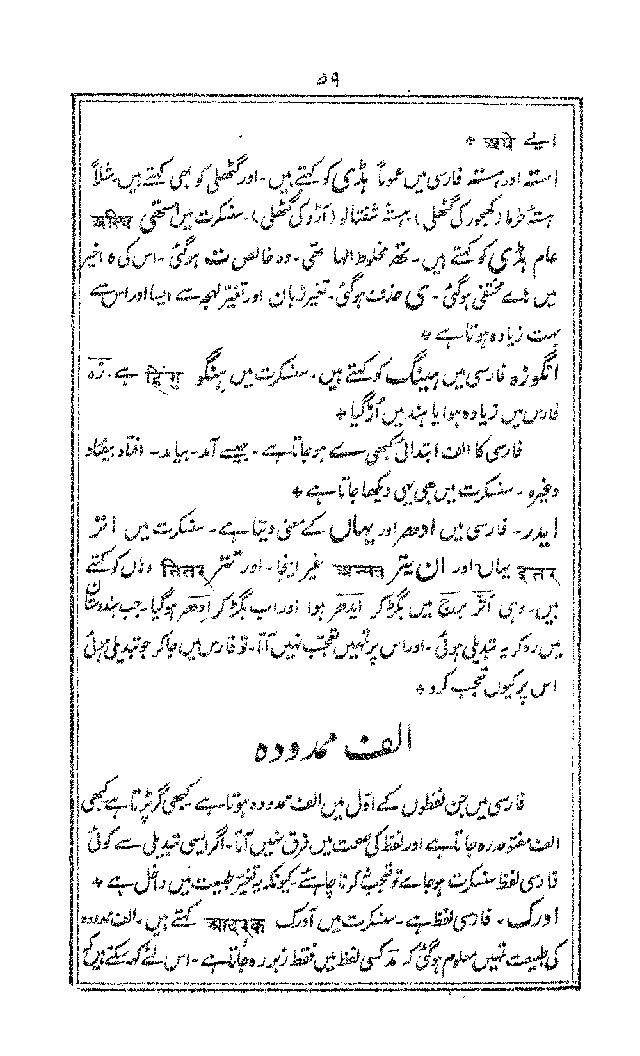 ۵۹
اپے अपे *
استہ اور ہستہ فارسی میں عموماً ہڈی کو کہتے ہیں۔ اور گٹھلی کو بھی کہتے ہیں۔ مثلاً
ہستۂ خرما (کھجور کی گٹھلی)، ہستہ شفتالو (آڑو کی گٹھلی)۔ سنسکرت میں استھی अस्थि
عام ہڈی کو کہتے ہیں۔ تھہ مخلوط الہا تھی۔ وہ خالص ت ہو گئی۔ اس کی ہ اخیر
میں ہاے مختفی ہو گئی۔ ی حذف ہو گئی۔ تغیر زبان اور تغیر لہجہ سے ایسا اور اس سے
بہت زیادہ ہوتا ہے *
انگوزہ فارسی میں ہینگ کو کہتے ہیں۔ سنسکرت میں ہنگو हिंगु ہے۔ زہ
فارس میں زیادہ ہوا یا ہند میں اُڑ گیا *
فارسی کا الف ابتدائی کبھی ے ہو جاتا ہے۔ جیسے آمد۔ بیامد۔ افتاد بیفتاد
وغیرہ۔ سنسکرت میں بھی یہی دیکھا جاتا ہے *
ایدر۔ فارسی میں ادھر اور یہاں کے معنی دیتا ہے۔ سنسکرت میں اتر
इतर یہاں اور ان یتر अन्यत्र غیر اور تتر तितर وہاں کو کہتے
ہیں۔ وہی اتر برج میں بگڑ کر ایدھر ہوا اور اب بگڑ کر اِدھر ہو گیا۔ جب ہندوستان
میں رہ کر یہ تبدیلی ہوئی۔ اور اس پر تمہیں تعجب نہیں آتا۔ تو فارس میں جا کر جو تبدیلی ہوئی
اس پر کیوں تعجب کرو *
الف ممدودہ
فارسی میں جن لفظوں کے اوّل میں الف ممدودہ ہوتا ہے کبھی گر پڑتا ہے کبھی
الف مفتوحہ رہ جاتا ہے اور لفظ کی صحت میں فرق نہیں آتا۔ اگر ایسی تبدیلی سے کوئی
فارسی لفظ سنسکرت ہو جاے تو تعجب نہ کرنا چاہئے کیونکہ یہ تغیر طبیعت میں داخل ہے *
اورک۔ فارسی لفظ ہے۔ سنسکرت میں آورک आदरक کہتے ہیں۔ الف ممدودہ
کی طبیعت تمہیں معلوم ہو گئی کہ مد کسی لفظ میں فقط زبر رہ جاتا ہے۔ اس لئے کہہ سکتے ہیں کہ